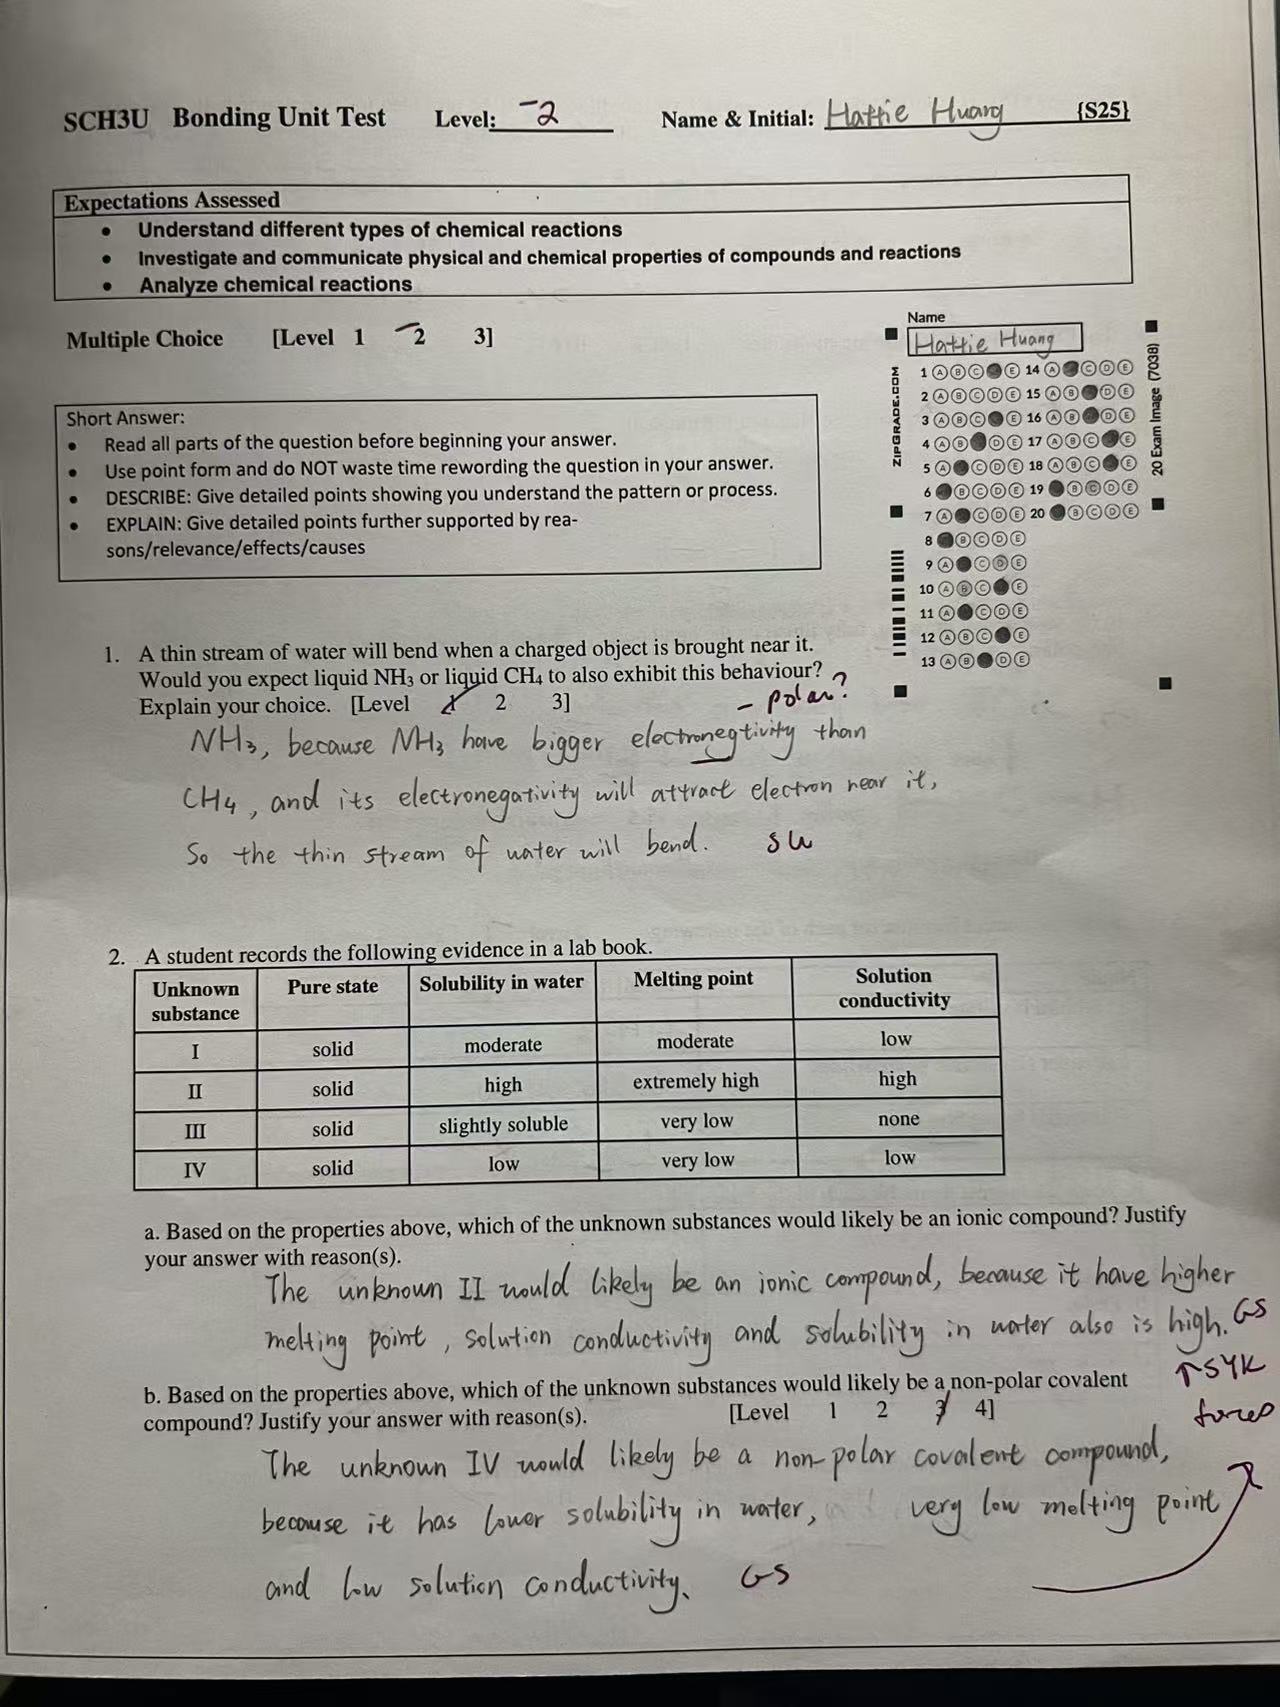 SCH3U Bonding Unit Test Level: -2 Name & Initial: Hattie Huang {S25}
Expectations Assessed
• Understand different types of chemical reactions
• Investigate and communicate physical and chemical properties of compounds and reactions
• Analyze chemical reactions
Multiple Choice [Level 1 -2 3]
Name
Hattie Huang
ZIPGRADE.COM
20 Exam Image (7038)
1 A B C E 14 A C D E
2 A B C D E 15 A B D E
3 A B C E 16 A B D E
4 A B D E 17 A B C E
5 A C D E 18 A B C E
6 B C D E 19 B C D E
7 A C D E 20 B C D E
8 B C D E
9 A C D E
10 A B C E
11 A C D E
12 A B C E
13 A B D E
Short Answer:
• Read all parts of the question before beginning your answer.
• Use point form and do NOT waste time rewording the question in your answer.
• DESCRIBE: Give detailed points showing you understand the pattern or process.
• EXPLAIN: Give detailed points further supported by rea-
sons/relevance/effects/causes
1. A thin stream of water will bend when a charged object is brought near it.
Would you expect liquid NH3 or liquid CH4 to also exhibit this behaviour?
Explain your choice. [Level 1 2 3] - polar?
NH3, because NH3 have bigger electronegtivity than
CH4, and its electronegativity will attract electron near it,
So the thin stream of water will bend. SW
2. A student records the following evidence in a lab book.
Unknown substance Pure state Solubility in water Melting point Solution conductivity
I solid moderate moderate low
II solid high extremely high high
III solid slightly soluble very low none
IV solid low very low low
a. Based on the properties above, which of the unknown substances would likely be an ionic compound? Justify
your answer with reason(s).
The unknown II would likely be an ionic compound, because it have higher
melting point, solution conductivity and solubility in water also is high. GS
↑SYK
forces
b. Based on the properties above, which of the unknown substances would likely be a non-polar covalent
compound? Justify your answer with reason(s). [Level 1 2 3 4]
The unknown IV would likely be a non-polar covalent compound,
because it has lower solubility in water, very low melting point
and low solution conductivity. GS